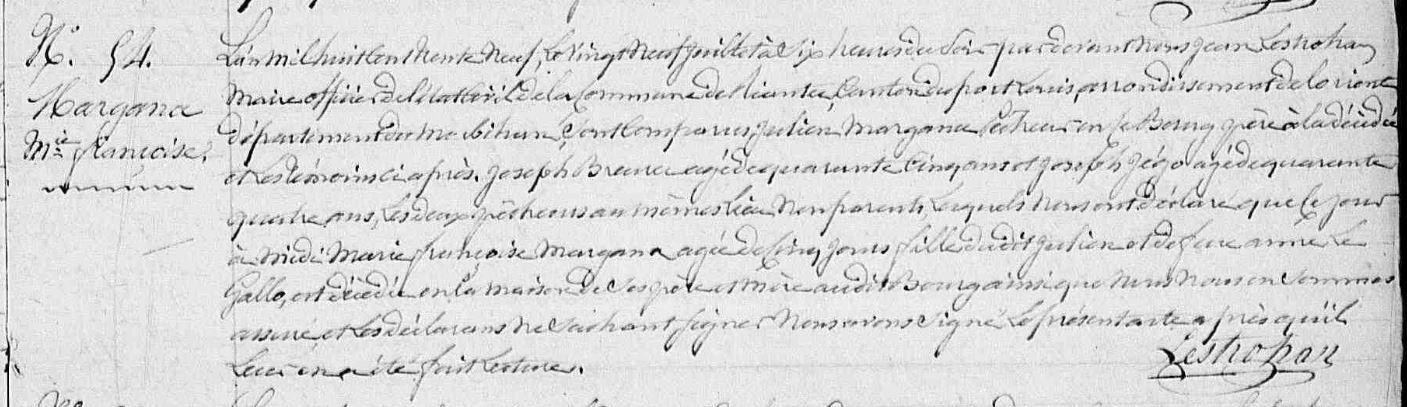 N.° 54.
Margana
M.ie françoise.
L'an mil huit cent trente Neuf, Le vingt Neuf Juillet à Six heures du Soir par devant Nous Jean Lestrohan
Maire officier de l'état Civil de la Commune de Riantec, Canton du port Louis, arrondissement de lorient
département du morbihan, Sont Comparus Julien Margana pêcheur en ce Bourg père à la décédée
et Les témoins ci après. Joseph agé de quarante Cinq ans et Joseph Jégo agé de quarante
quatre ans, Les deux pêcheurs au même Lieu Non parents, Lesquels Nous ont déclaré que Ce jour
à midi Marie françoise Margana agée de Cinq Jours fille dudit Julien et de feue anne Le
Gallo, est décédée en La maison de Ses père et Mère audit Bourg ainsi que Nous Nous en Sommes
assuré, et Les déclarans Ne Sachant Signer Nous avons Signé Le présent acte après qu'il
Leur en a été fait Lecture.
Lestrohan